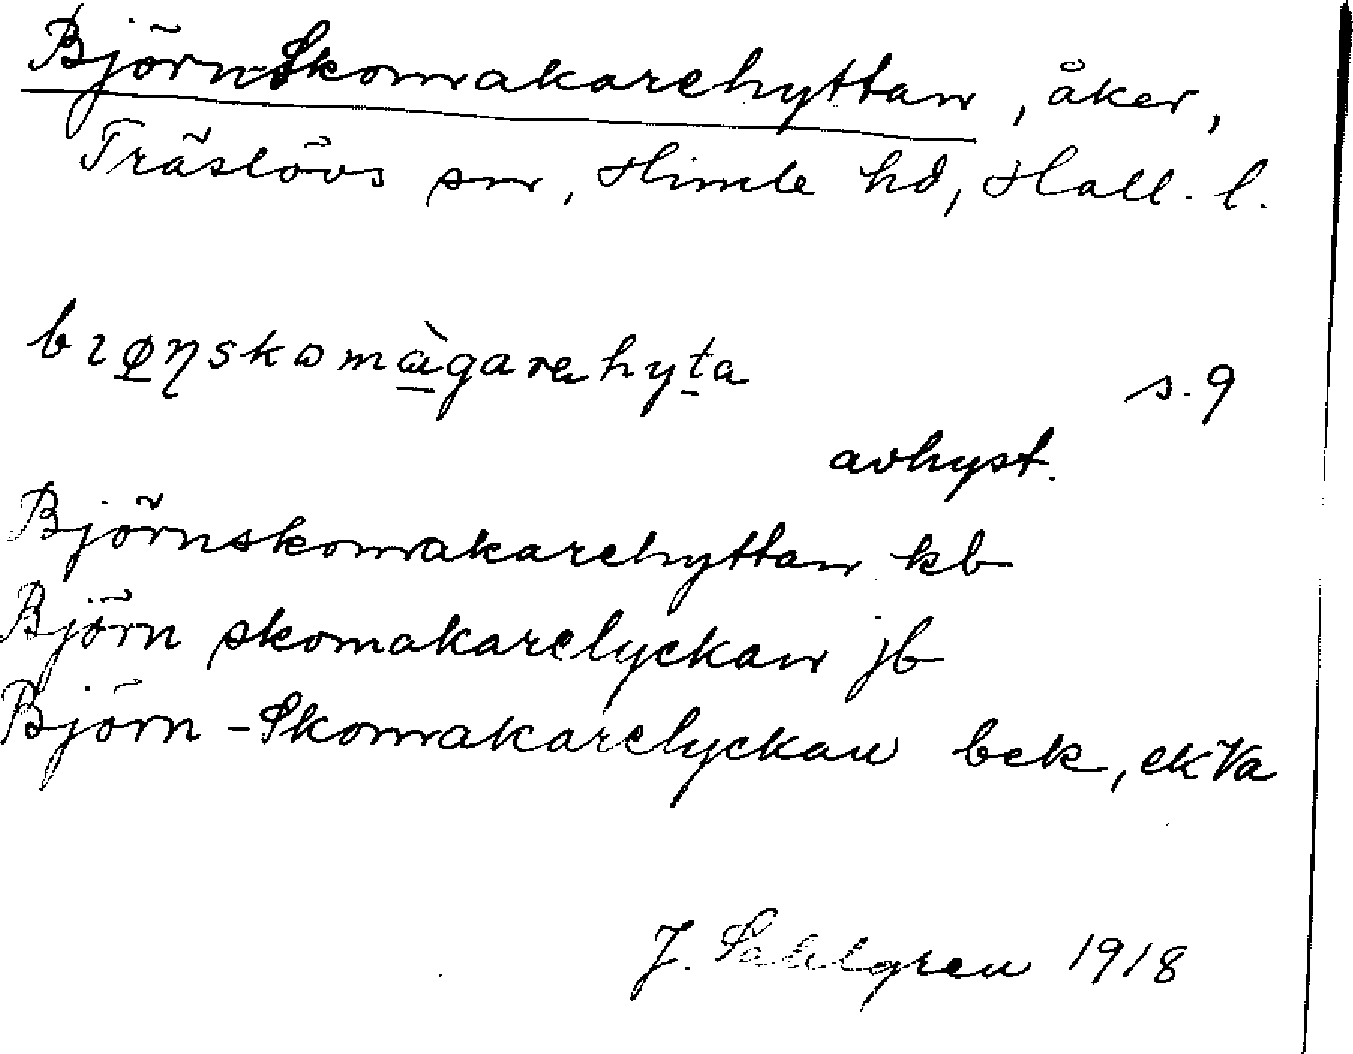 Björn-Skomakarehyttan, åker,
Träslövs sn, Himle hd, Hall. l.
bıø̱ŋskɷmɑ̱̀garehyṯa s. 9
avhyst.
Björnskomakarehyttan kb
Björn skomakarelyckan jb
Björn-Skomakarelyckan bek, ekVa
J. Sahlgren 1918